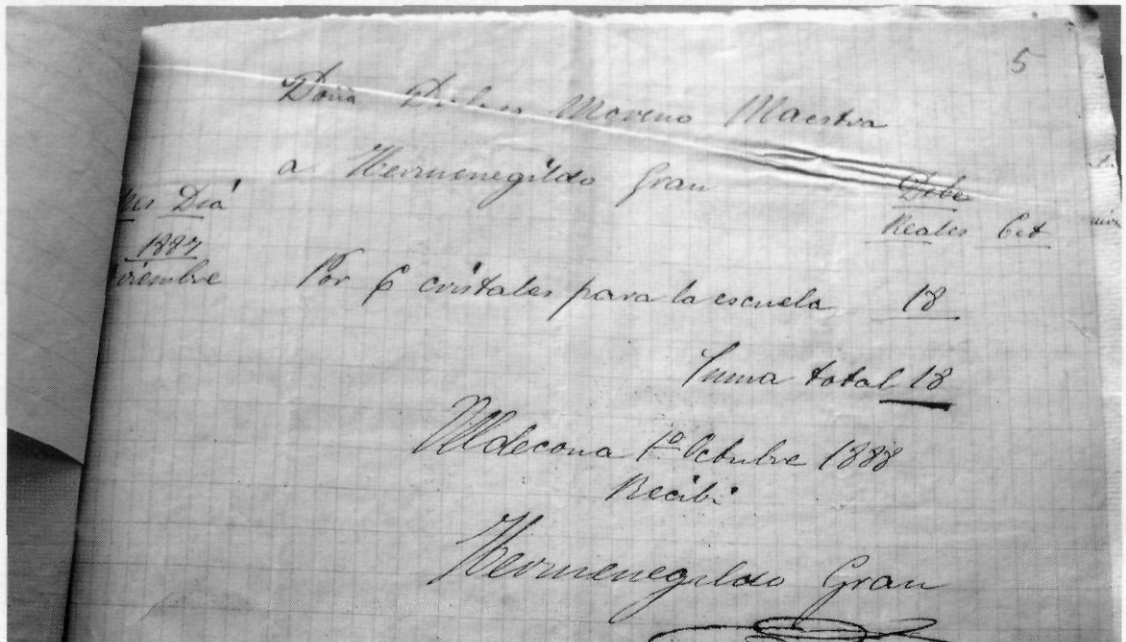 5
Doña Dolores Moreno Maestra
a Hermenegildo Grau Debe
Mes Dia Reales Cet
1887
Por 6 cristales para la escuela 18
Suma total 18
Ulldecona 1º Octubre 1888
Recibi
Hermenegildo Grau